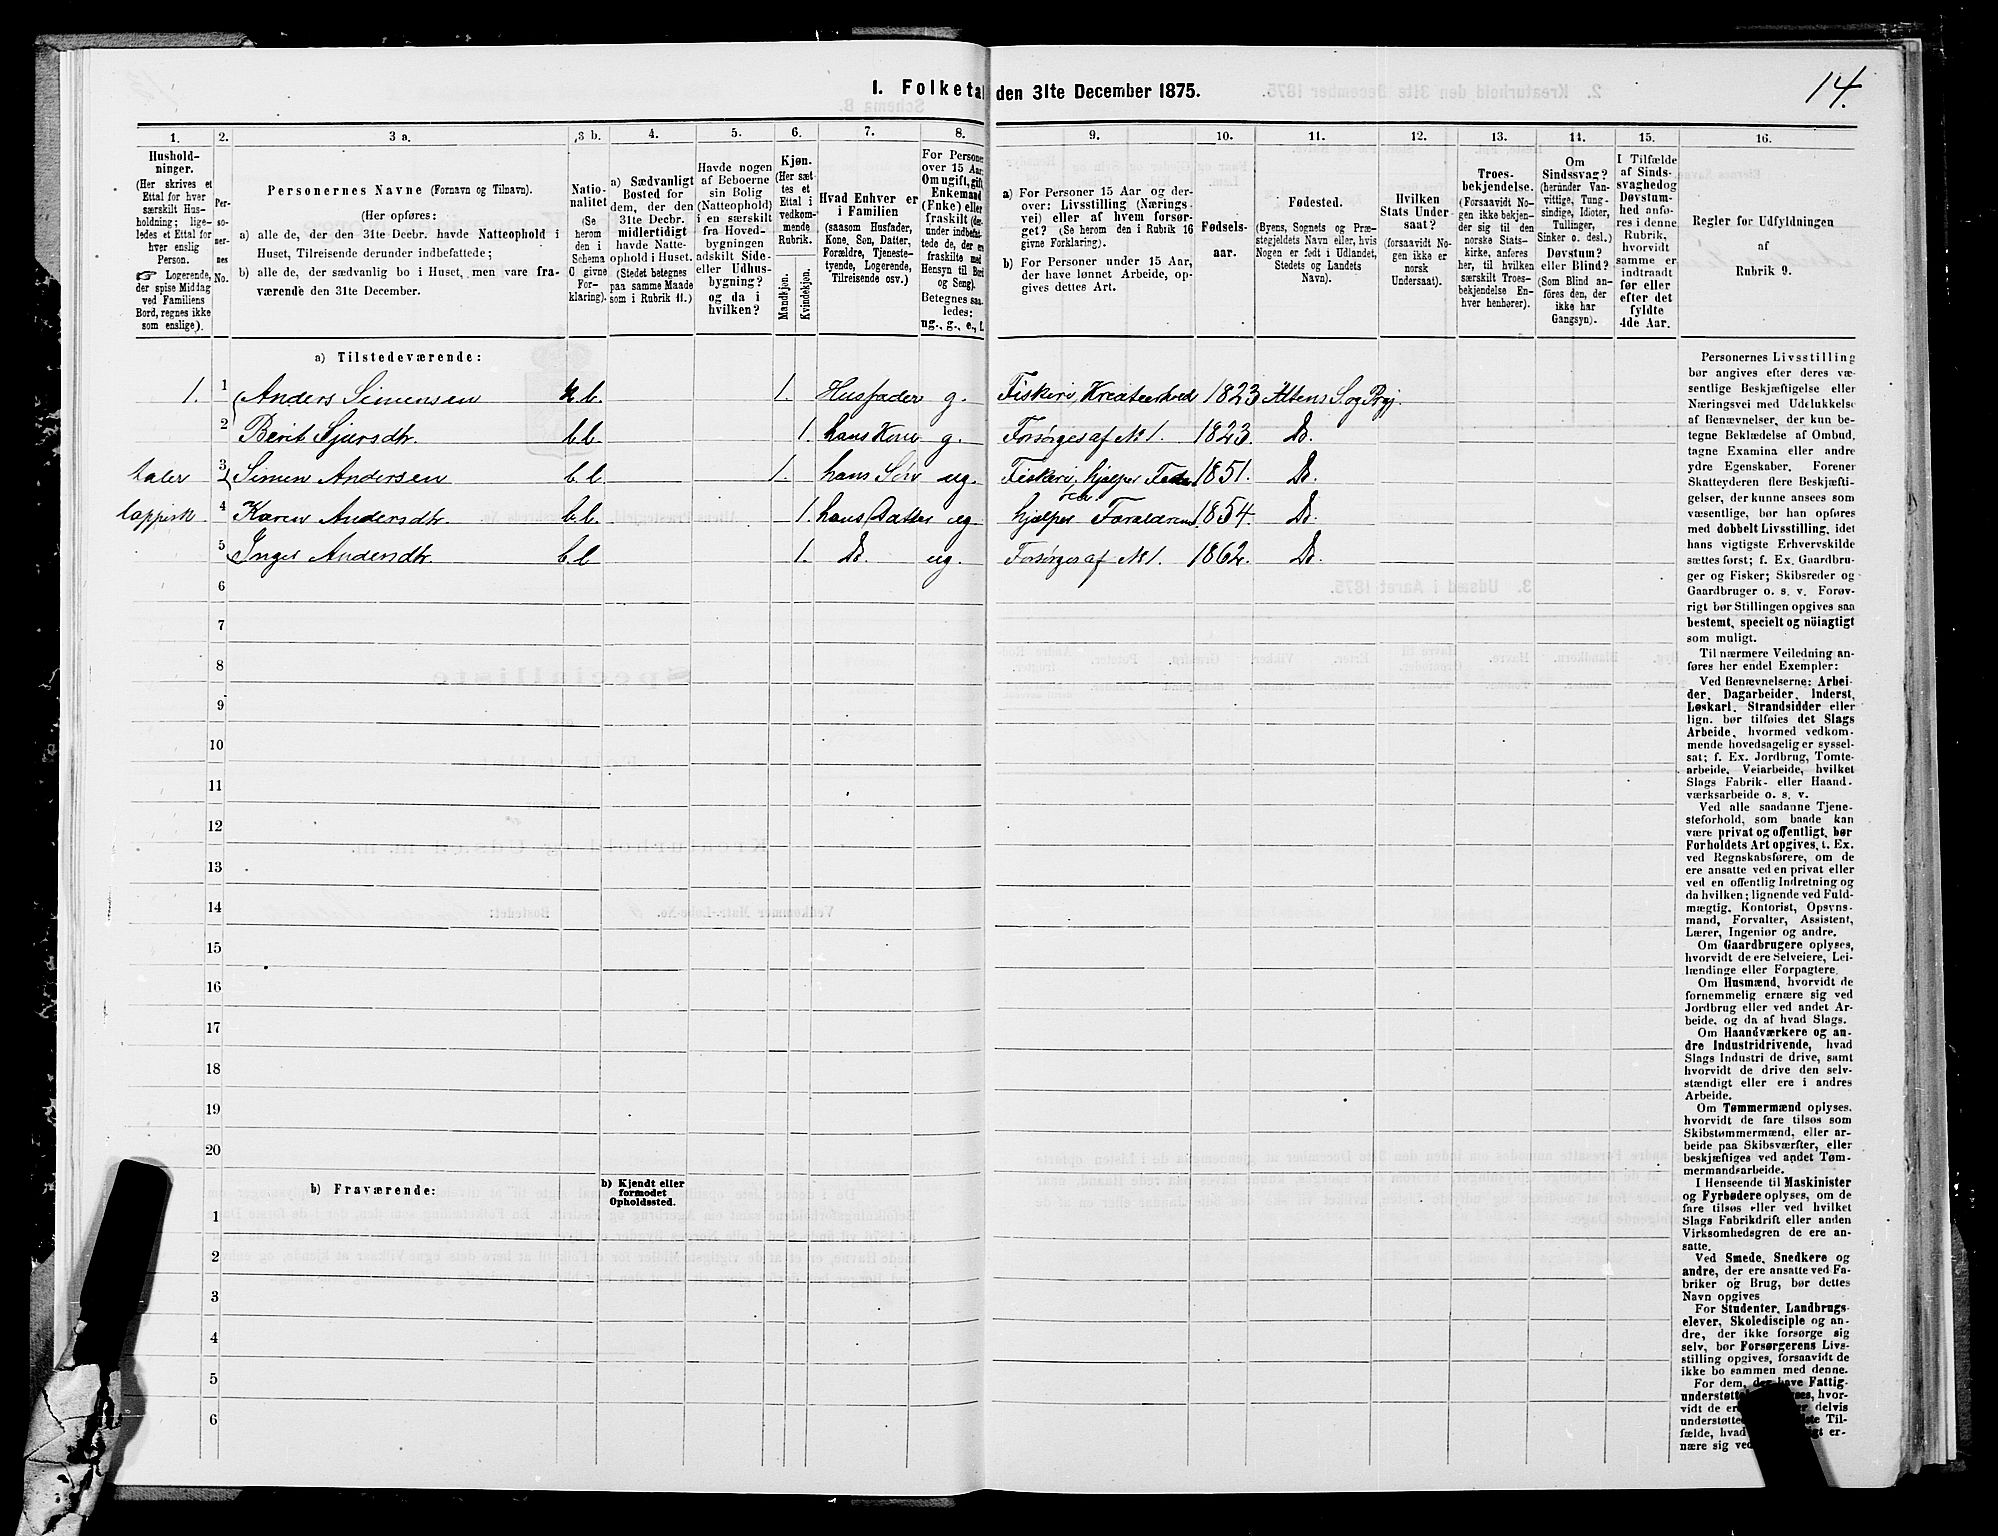 14.
I. Folketal den 31te December 1875.
1. 2. 3 a. 3 b. 4. 5. 6. 7. 8. 9. 10. 11. 12. 13. 14. 15. 16.
Hushold-
ninger.
(Her skrives et
Ettal for hver
særskilt Hus-
holdning; lige-
ledes et Ettal for
hver enslig
Person.
☞ Logerende,
der spise Middag
ved Familiens
Bord, regnes ikke
som enslige).
Per-
so-
ner-
nes
No.
Personernes Navne (Fornavn og Tilnavn).
(Her opføres:
a) alle de, der den 31te Decbr. havde Natteophold i
Huset, Tilreisende derunder indbefattede;
b) alle de, der sædvanlig bo i Huset, men vare fra-
værende den 31te December.
Natio-
nalitet
(Se
herom
den i
Schema
C givne
For-
klaring).
a) Sædvanligt
Bosted for
dem, der den
31te Decbr.
midlertidigt
havde Natte-
ophold i Huset.
(Stedet betegnes
paa samme Maade
som i Rubrik 11.)
Havde nogen
af Beboerne
sin Bolig
(Natteophold)
i en særskilt
fra Hoved-
bygningen
adskilt Side-
eller Udhus-
bygning?
og da i
hvilken?
Kjøn.
(Her sæt-
tes et
Ettal i
vedkom-
mende
Rubrik.
Mandkjøn.
Kvindekjøn.
Hvad Enhver er
i Familien
(saasom Husfader,
Kone, Søn, Datter,
Forældre, Tjeneste-
tyende, Logerende,
Tilreisende osv.)
For Personer
over 15 Aar:
Om ugift, gift
Enkemand
(Enke) eller
fraskilt (der-
under indbefat-
tede de, der ere
fraskilte med
Hensyn til Bord
og Seng).
Betegnes saa-
ledes:
ug., g., e., f.
a) For Personer 15 Aar og der-
over: Livsstilling (Nærings-
vei) eller af hvem forsør-
get? (Se herom den i Rubrik 16
givne Forklaring).
b) For Personer under 15 Aar,
der have lønnet Arbeide, op-
gives dettes Art.
Fødsels-
aar.
Fødested.
(Byens, Sognets og Præ-
stegjeldets Navn eller, hvis
Nogen er født i Udlandet,
Stedets og Landets
Navn).
Hvilken
Stats Under-
saat?
(forsaavidt No-
gen ikke er
norsk
Undersaat).
Troes-
bekjendelse.
(Forsaavidt No-
gen ikke bekjen-
der sig til den
norske Stats-
kirke, anføres
her, til hvilken
særskilt Troes-
bekjendelse En-
hver henhører).
Om
Sindssvag?
(herunder Van-
vittige, Tung-
sindige, Idioter,
Tullinger,
Sinker o. desl.)
Døvstum?
eller Blind?
(Som Blind an-
føres den, der
ikke har
Gangsyn).
I Tilfælde
af Sinds-
svaghed og
Døvstum-
hed anfø-
res i denne
Rubrik,
hvorvidt
samme er
indtraadt
før eller
efter det
fyldte
4de Aar.
Regler for Udfyldningen
af
Rubrik 9.
a) Tilstedeværende:
1. 1 Anders Simensen b.b. 1. Husfader g. Fiskeri, Kreaturhold 1823 Altens S. og Prgj.
2 Berit Sjursdtr. b.b. 1. hans Kone g. Forsørges af No 1. 1823. Do.
taler 3 Simen Andersen b.b. 1. hans Søn ug. Fiskeri, hjælper Fader 1851. Do.
lappisk 4 Karen Andersdtr. b.b. 1. hans Datter ug. hjælper Forældrene 1854. Do.
5 Inger Andersdtr. b.b 1. Do. ug. Forsørges af No 1. 1862. Do.
6
7
8
9
10
11
12
13
14
15
16
17
18
19
20
b) Fraværende:
b) Kjendt eller
formodet
Opholdssted.
1
2
3
4
5
6
Personernes Livsstilling
bør angives efter deres væ-
sentlige Beskjæftigelse eller
Næringsvei med Udelukkelse
af Benævnelser, der kun be-
tegne Beklædelse af Ombud,
tagne Examina eller andre
ydre Egenskaber. Forener
Skatteyderen flere Beskjæfti-
gelser, der kunne ansees som
væsentlige, bør han opføres
med dobbelt Livsstilling, idet
hans vigtigste Erhvervskilde
sættes først; f. Ex. Gaardbru-
ger og Fisker; Skibsreder og
Gaardbruger o. s. v. Forøv-
rigt bør Stillingen opgives saa
bestemt, specielt og nöiagtigt
som muligt.
Til nærmere Veiledning an-
føres her endel Exempler:
Ved Benævnelserne: Arbei-
der, Dagarbeider, Inderst,
Løskarl, Strandsidder eller
lign. bør tilføies det Slags
Arbeide, hvormed vedkom-
mende hovedsagelig er syssel-
sat; f. Ex. Jordbrug, Tomte-
arbeide, Veiarbeide, hvilket
Slags Fabrik- eller Haand-
værksarbeide o. s. v.
Ved alle saadanne Tjene-
steforhold, som baade kan
være privat og offentligt, bør
Forholdets Art opgives, t. Ex.
ved Regnskabsførere, om de
ere ansatte ved en privat eller
ved en offentlig Indretning og
da hvilken; lignende ved Fuld-
mægtig, Kontorist, Opsyns-
mand, Forvalter, Assistent,
Lærer, Ingeniør og andre.
Om Gaardbrugere oplyses,
hvorvidt de ere Selveiere, Lei-
lændinge eller Forpagtere.
Om Husmænd, hvorvidt de
fornemmelig ernære sig ved
Jordbrug eller ved andet Ar-
beide, og da af hvad Slags.
Om Haandværkere og an-
dre Industridrivende, hvad
Slags Industri de drive, samt
hvorvidt de drive den selv-
stændigt eller ere i andres
Arbeide.
Om Tømmermænd oplyses,
hvorvidt de fare tilsøs som
Skibstømmermænd, eller ar-
beide paa Skibsværfter, eller
beskjæftiges ved andet Tøm-
mermandsarbeide.
I Henseende til Maskinister
og Fyrbødere oplyses, om de
fare tilsøs eller ved hvilket
Slags Fabrikdrift eller anden
Virksomhedsgren de ere an-
satte.
Ved Smede, Snedkere og
andre, der ere ansatte ved Fa-
briker og Brug, bør dettes
Navn opgives
For Studenter, Landbrugs-
elever, Skoledisciple og an-
dre, der ikke forsørge sig
selv, bør Forsørgerens Livs-
stilling opgives, forsaavidt de
ikke bo sammen med denne.
For dem, der have Fattig-
understøttelse, hvor-
vidt de ere delvis
understøttede Til-
fælde, hvad er-
nære sig ved